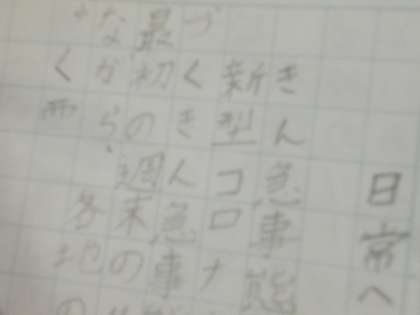 日常へ
きん急事態
新型コロナ
づくきん急事
最初の週末の
ながら、各地の
く雨